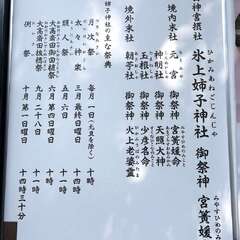 神宮摂社
ひかみあねごじんじゃ
氷上姉子神社 御祭神 宮簀媛
みやすひめのみ
境内末社 元宮 御祭神 宮簀媛命
神明社 御祭神 天照大神
玉根社 御祭神 少彦名命
境外末社 朝苧社 御祭神 火上老婆靈
姉子神社の主な祭典
月次祭 毎月一日(元旦を除く) 十時
太々神楽 三月最終日曜日 十時
頭人祭 五月六日 十時
大高斎田御田植祭 六月第四日曜日 十時
大高斎田抜穂祭 九月二十八日 十時
例祭 十月第一日曜日 十四時三十分